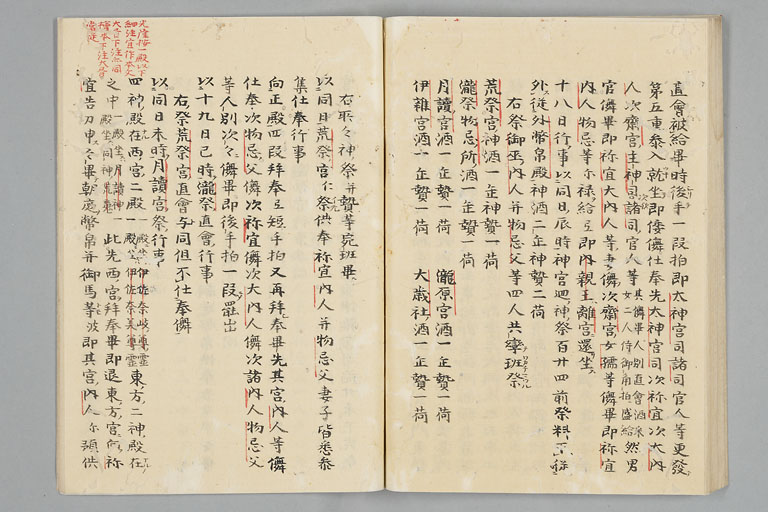 直會被給畢時後手一段拍即太神宮司諸司官人等更發
第五重泰入就坐即倭儛仕奉先大神宮司次祢宜次大内
人次齋宮主神司諸司官人等其儛畢人別直會酒采女二人侍御角柏盛給然男
官儛畢即祢宜大内人等妻儛次齋宮女孺等儛畢即祢宜
内人物忌等尓祿給之即内親王離宮還坐
十八日行事以同日辰時神宮廻神祭百廿四前祭料下從
外從外幣帛殿神酒二缶神贄二荷
右祭御巫内人并物忌父等四人共率班祭
荒祭宮神酒一缶神贄一荷
瀧祭物忌所酒一缶贄一荷
月讀宮酒一缶贄一荷 瀧原宮酒一缶贄一荷
伊雜宮酒一缶贄一荷 大歳社酒一缶贄一荷
右取々神祭并贄等宛班畢
以同日荒祭宮仁祭供奉祢宜内人并物忌父妻子皆悉泰
集仕奉行事
向正殿四段拜奉且短手拍又再拜奉畢先其宮内人等儛
仕奉次物忌父儛次祢宜儛次大内人儛次諸内人物忌父
等人別次々儛畢即後手拍一段罷出
以十九日巳時瀧祭直會行事
右祭荒祭宮直會与同但不仕奉儛
以同日未時月讀宮祭行事
四神殿在西宮二殿一殿坐伊佐奈岐尊靈一殿坐伊佐奈美尊靈東方二神殿在
之中一殿坐月讀神一殿坐同神荒魂此先西宮拜奉畢即退東方宮向祢
宜告刀申之畢朝庭幣帛并御馬等波即其宮内人尓預供